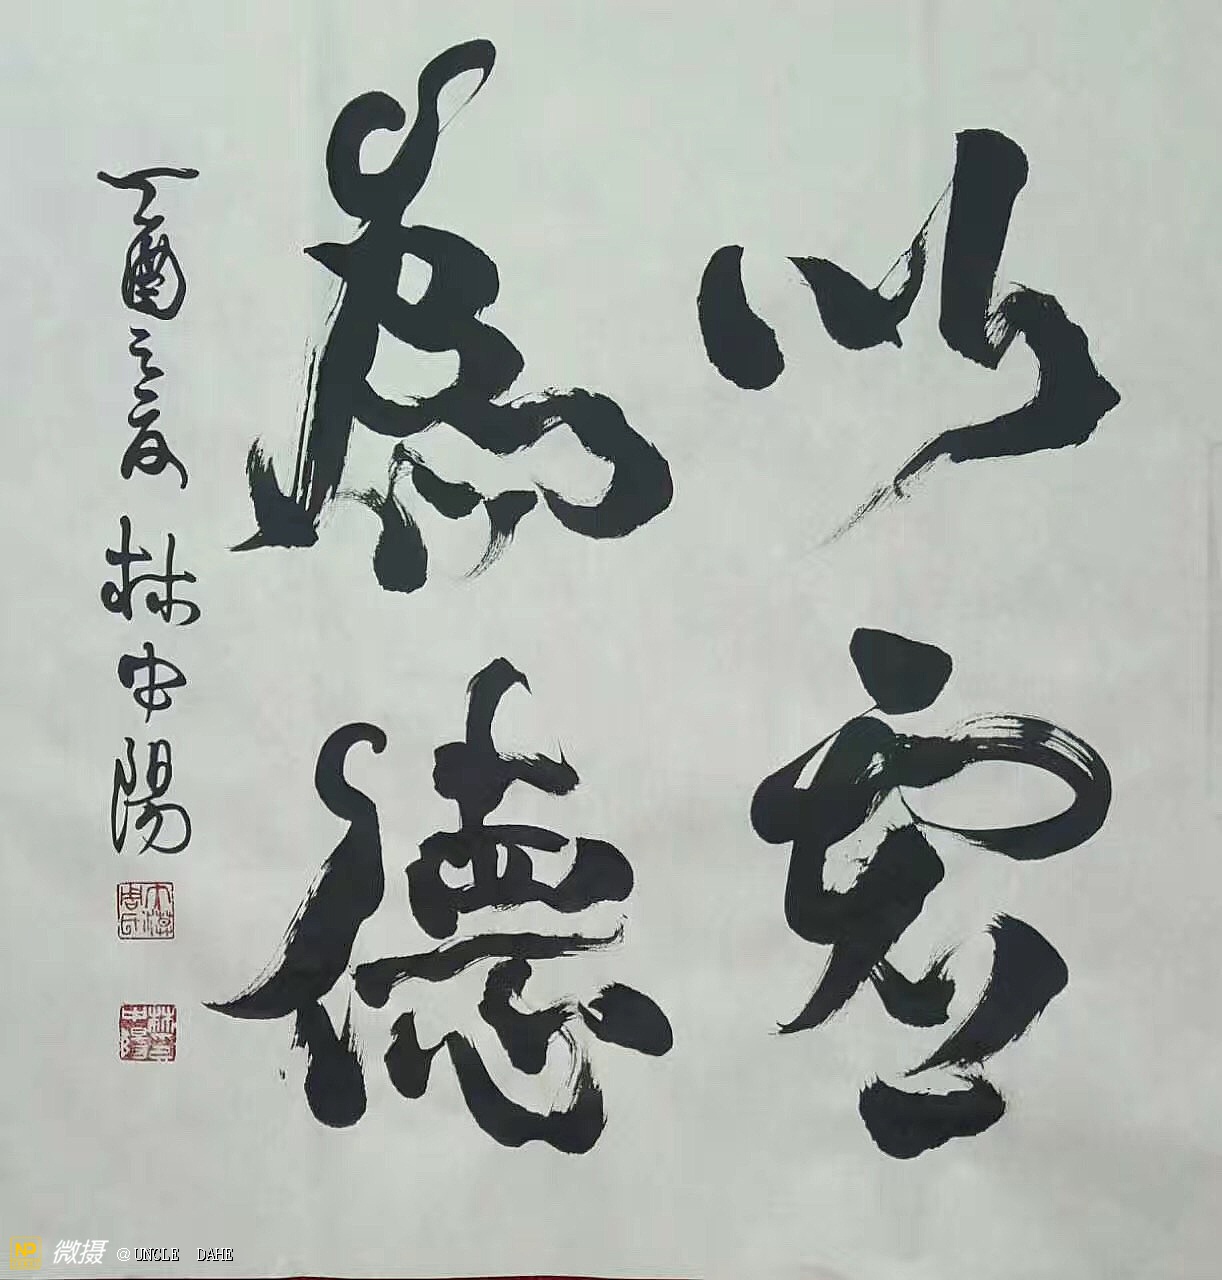 以虚
為德
丁酉之夏 林中陽
微摄 @UNCLE DAHE